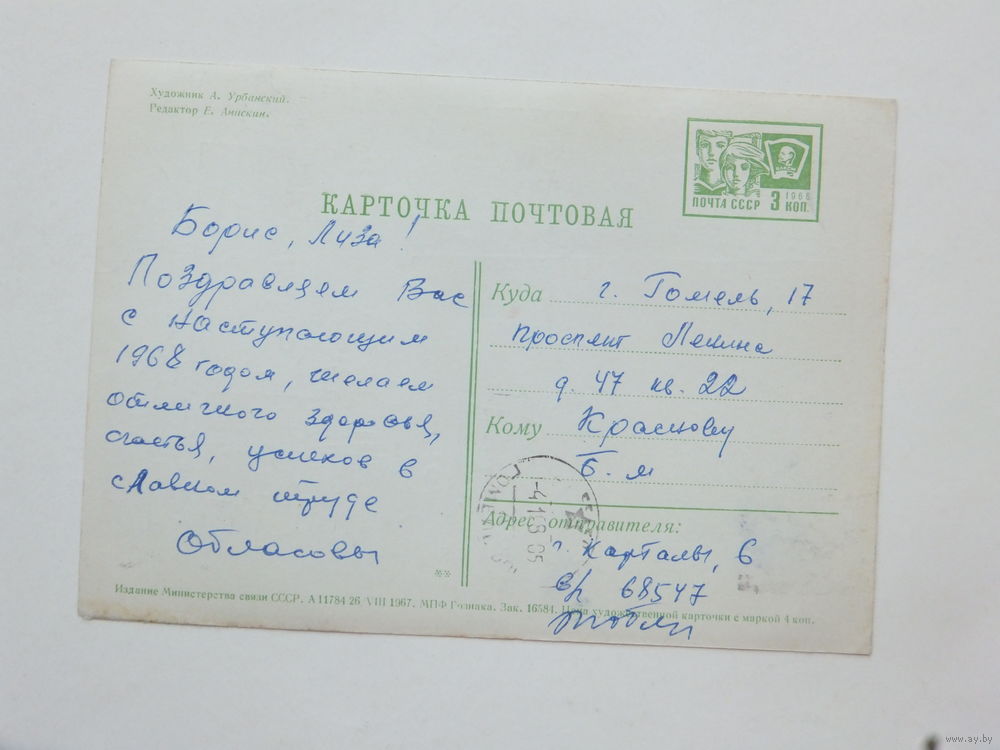 Художник А. Урбанский.
Редактор Е. Анискин.
ПОЧТА СССР 3 КОП.
1966
КАРТОЧКА ПОЧТОВАЯ
Борис, Лиза!
Поздравляем Вас
с наступающим
1968 годом, желаем
отличного здоровья,
счастья, успехов в
славном труде
Обласовы
Куда г. Гомель, 17
проспект Ленина
д. 47 кв. 22
Кому Краснову
Б. М
Адрес отправителя:
г. Карталы, 6
в/ч 68547
Издание Министерства связи СССР. А 11784 26 VIII 1967. МПФ Гознака. Зак. 16584. Цена художественной карточки с маркой 4 коп.
www.ay.by